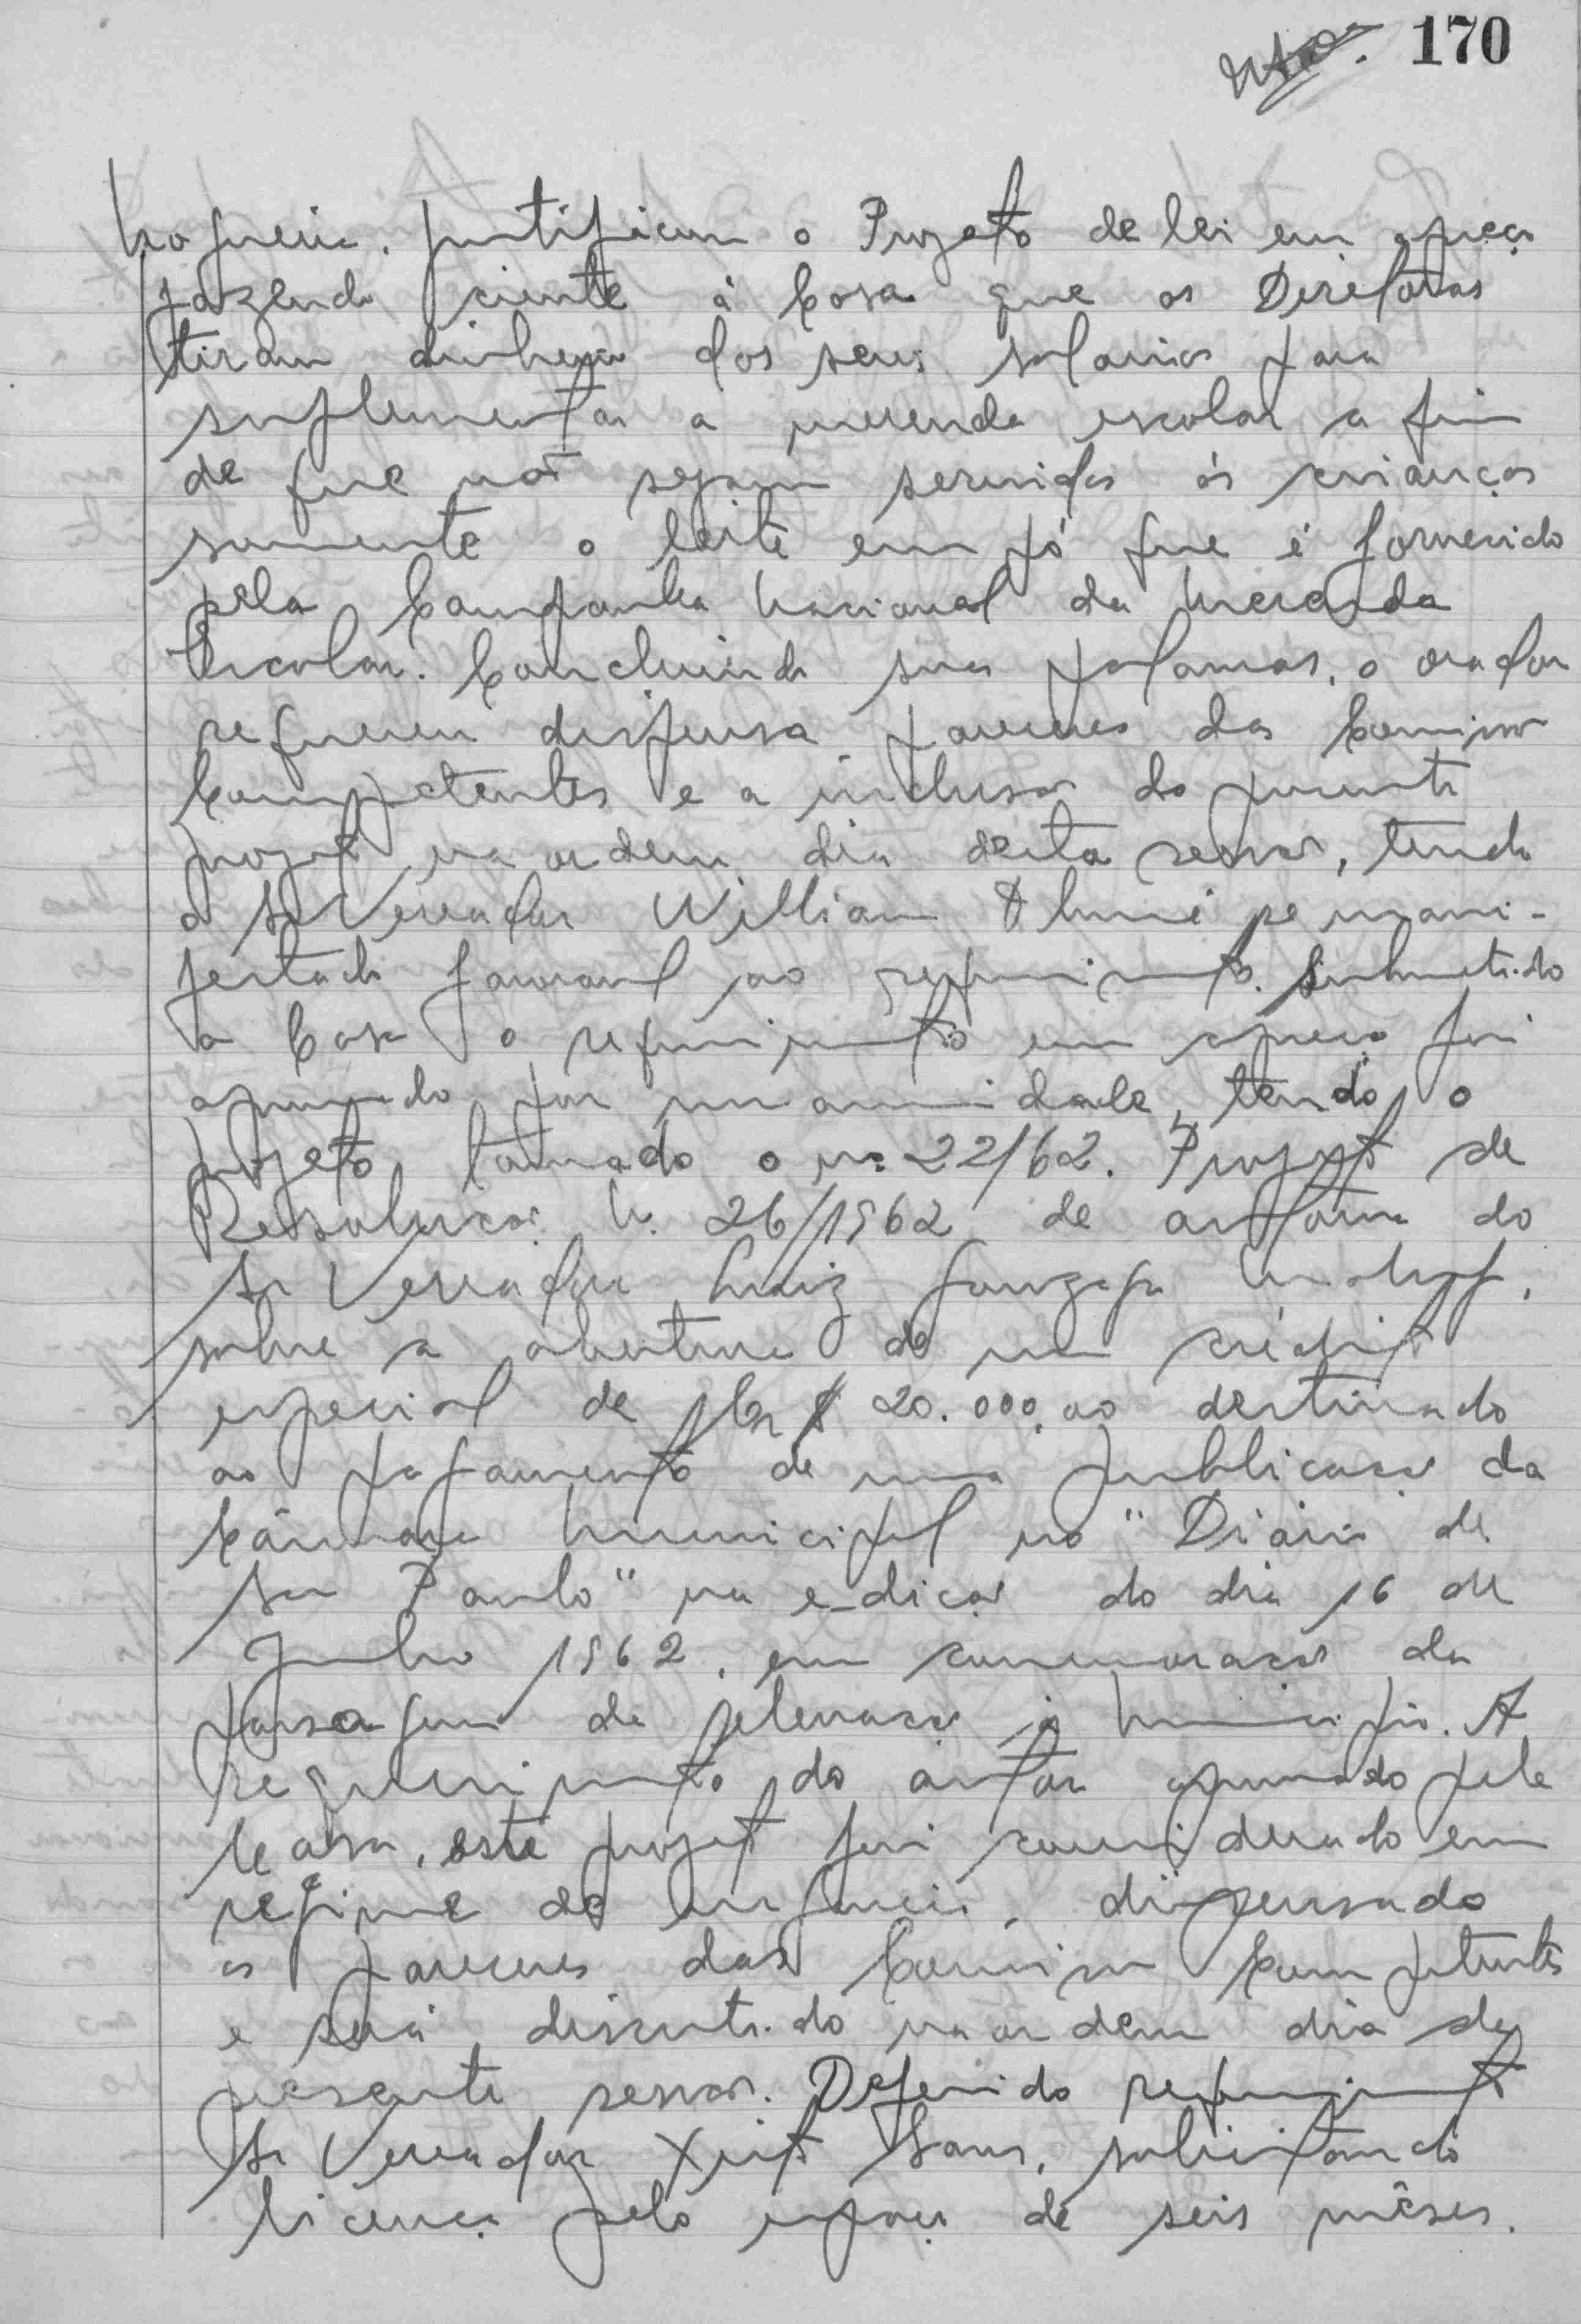 170
Nogueira. justificam o Projeto de lei em apreço
fazendo ciente à Casa que os Diretoras
tiram dinheiro dos seus salarios para
suplementar a merenda escolar a fim
de que não sejam servidos ás crianças
somente o leite em pó que é fornecido
pela Campanha Nacional da Merenda
Escolar. Concluindo suas palavras, o orador
requereu dispensa pareceres das Comissões
Competentes e a inclusão do presente
projeto na ordem dia desta sessão, tendo
o Sr Vereador William se mani-
festado favoravel ao requerimento. Submetido
a Casa o requerimento em apreço foi
aprovado por unanimidade, tendo o
projeto tomado o nº 22/62. Projeto de
Resolução N. 26/1962 de autoria do
Sr Vereador Luiz Gonzaga
sobre a abertura de um crédito
especial de Cr$ 20.000,00 destinado
ao pagamento de uma publicação da
Câmara Municipal no "Diário de
São Paulo" na edição do dia 16 de
Junho 1962, em comemoração da
passagem de elevação á Municipio. A
requerimento do autor aprovado pela
Casa, este projeto foi considerado em
regime de urgencia, dispensado
os pareceres das Comissões Competentes
e será discutido na ordem dia da
presente sessão. Deferido requerimento
Sr Vereador Xisto, solicitando
licença pelo espaço de seis mêses.